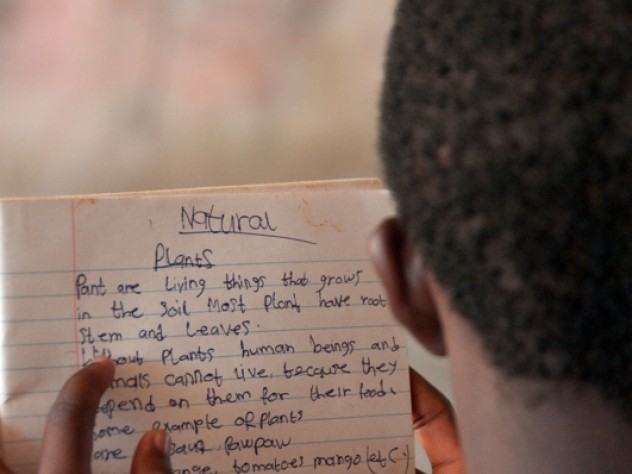 Natural
Plants
Pant are Living things that grows
in the soil Most Plant have root
Stem and Leaves.
Plants human beings and
cannot Live, because they
on them for their foods
example of Plants
Pawpaw
tomatoes mango (etc.)